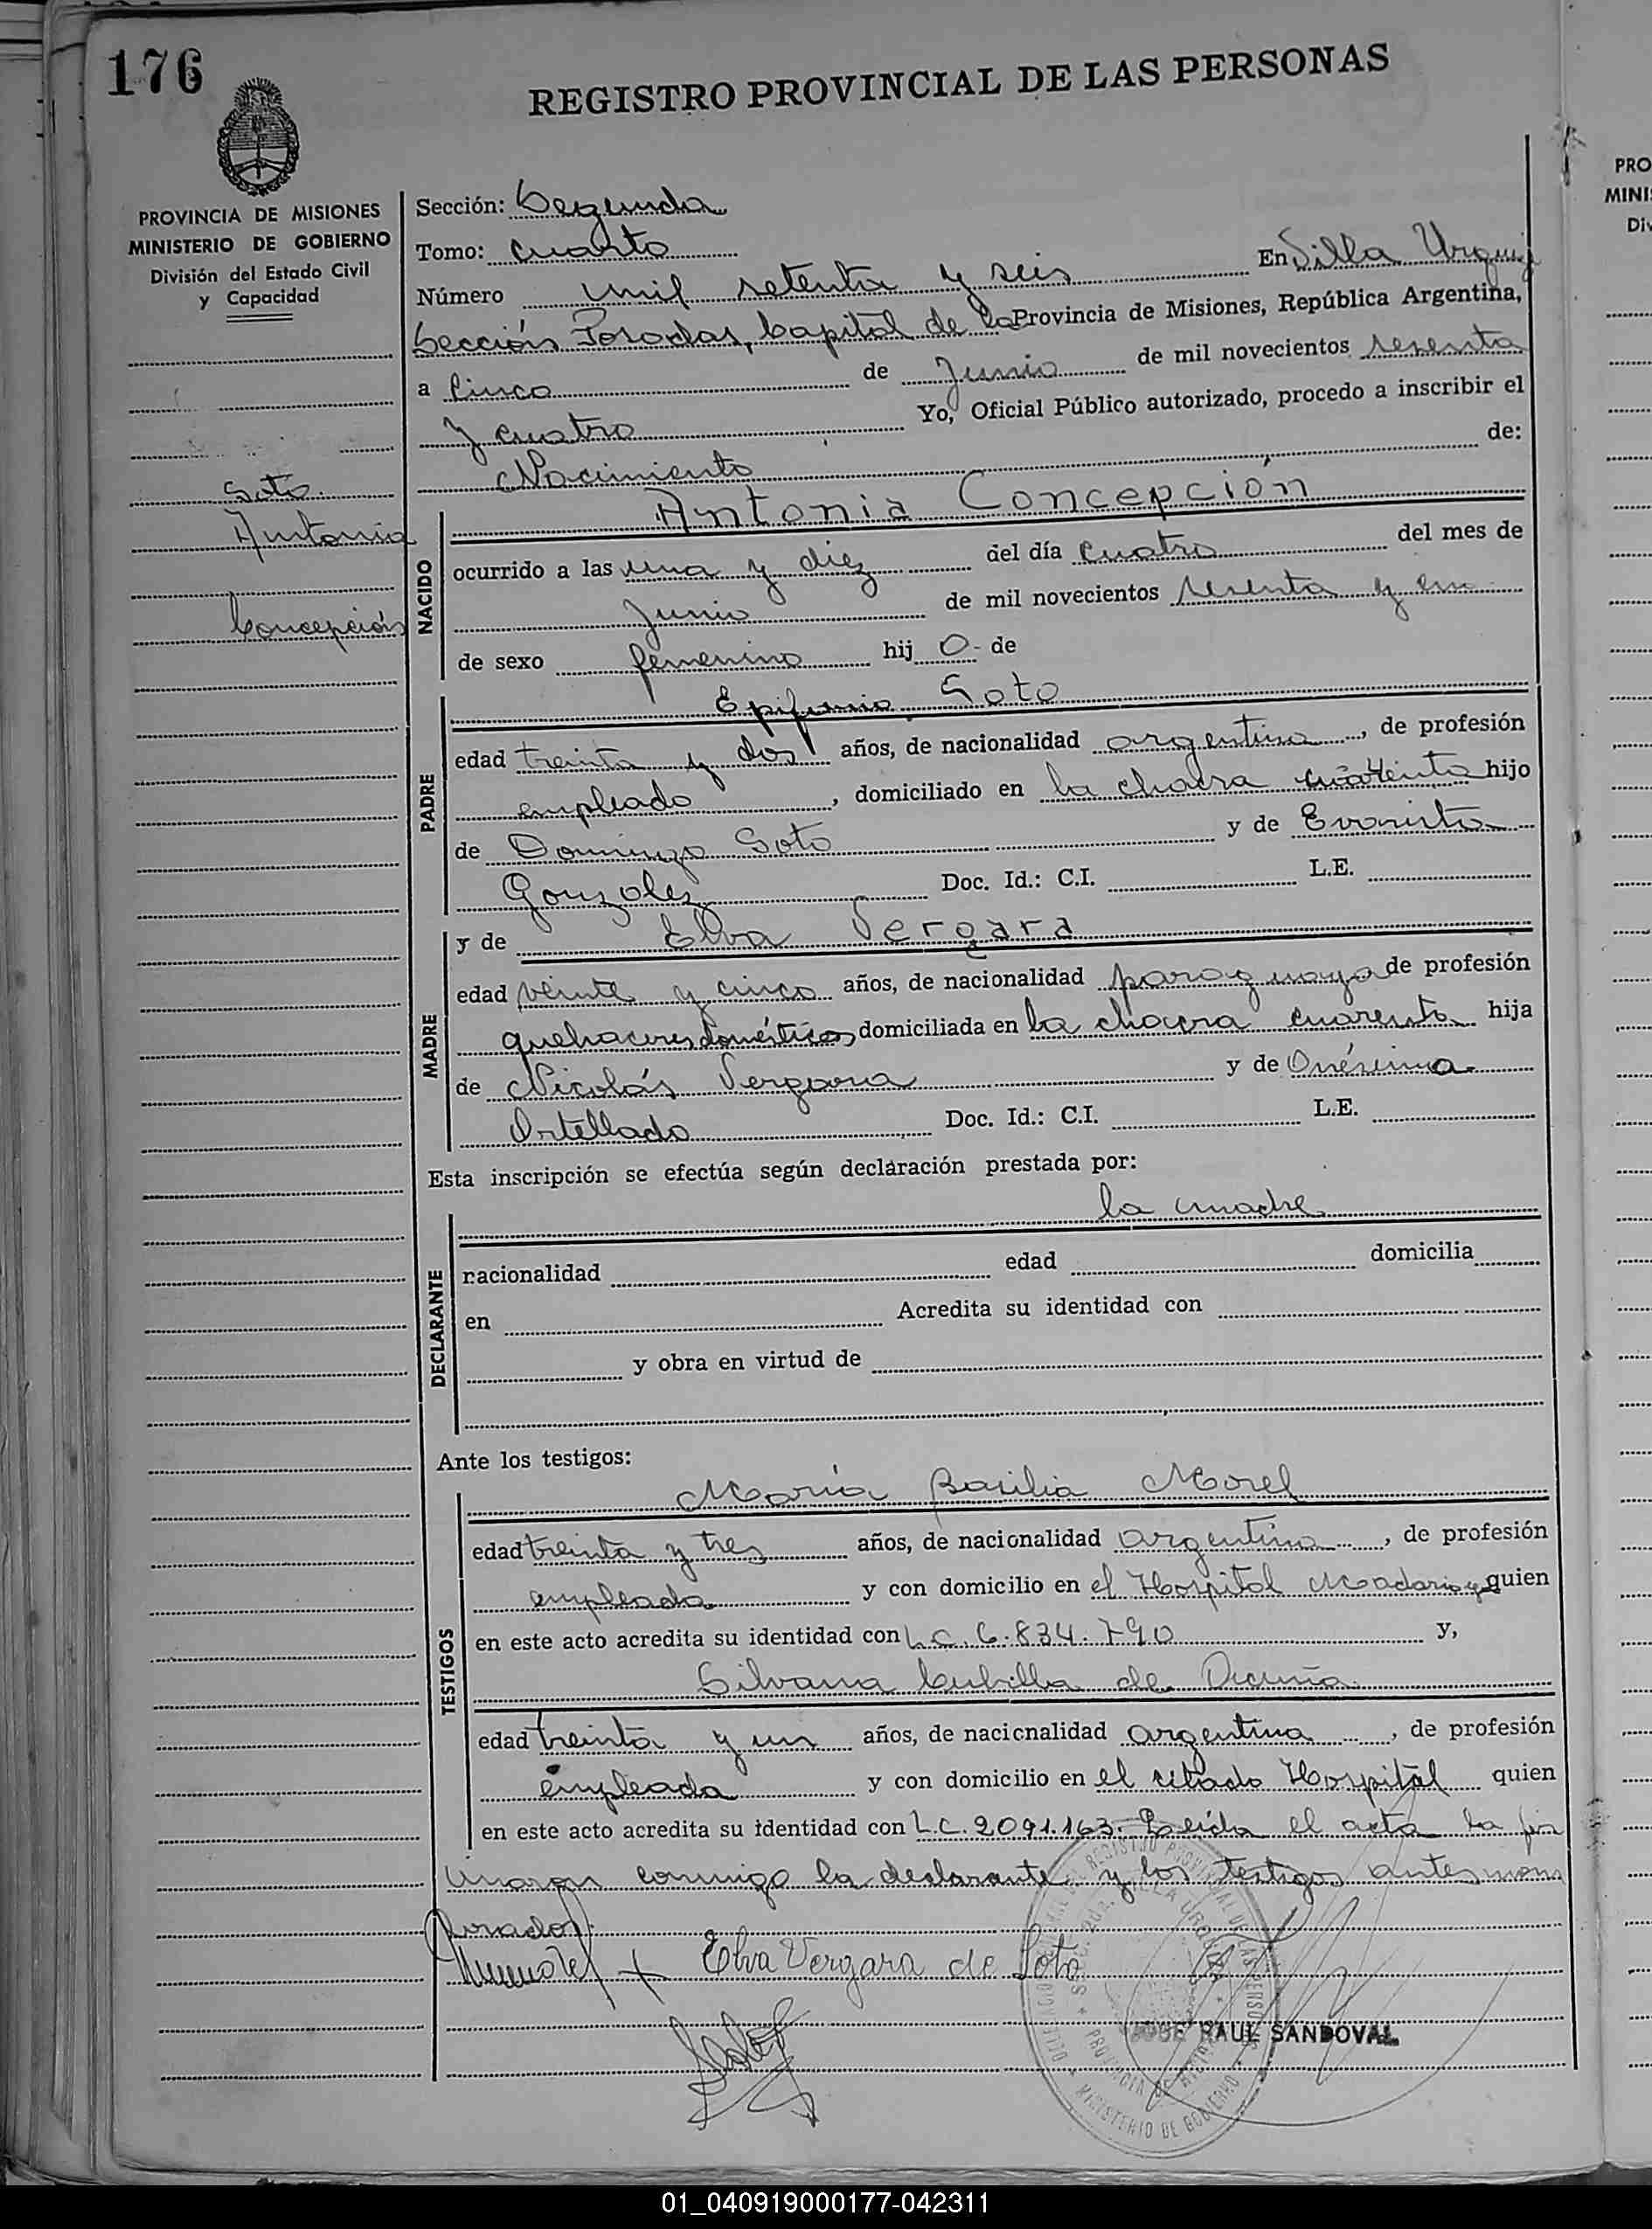 176
REGISTRO PROVINCIAL DE LAS PERSONAS
PROVINCIA DE MISIONES
MINISTERIO DE GOBIERNO
División del Estado Civil
y Capacidad
Soto
Antonia
Concepción
Sección: Segunda
Tomo: cuarto
Número mil setenta y seis En Villa Urquiz
Sección Posadas, Capital de la Provincia de Misiones, República Argentina,
a Cinco de Junio de mil novecientos sesenta
y cuatro Yo, Oficial Público autorizado, procedo a inscribir el
Nacimiento de:
NACIDO
Antonia Concepción
ocurrido a las una y diez del día cuatro del mes de
Junio de mil novecientos sesenta y
de sexo femenino hij o de
PADRE
Epifanio Soto
edad treinta y dos años, de nacionalidad argentina, de profesión
empleado, domiciliado en la chacra cuarenta hijo
de Domingo Soto y de Evarista
Gonzalez Doc. Id.: C.I. L.E.
MADRE
y de Elva Vergara
edad veinte y cinco años, de nacionalidad paraguaya de profesión
quehaceres domésticos domiciliada en la chacra cuarenta hija
de Nicolás Vergara y de Onésima
Ortellado Doc. Id.: C.I. L.E.
Esta inscripción se efectúa según declaración prestada por:
DECLARANTE
la madre
nacionalidad edad domicilia
en Acredita su identidad con
y obra en virtud de
Ante los testigos:
TESTIGOS
María Basilia Morel
edad treinta y tres años, de nacionalidad argentina, de profesión
empleada y con domicilio en el Hospital Madariaga quien
en este acto acredita su identidad con L.C. 6.834.790 y,
Silvana Cubilla de
edad treinta y un años, de nacionalidad argentina, de profesión
empleada y con domicilio en el citado Hospital quien
en este acto acredita su identidad con L.C. 2091.163. Leída el acta la fir
maron conmigo la declarante y los testigos antes men
cionados
Elva Vergara de Soto
JOSE RAUL SANDOVAL
PRO
MINI
Div
01_040919000177-042311